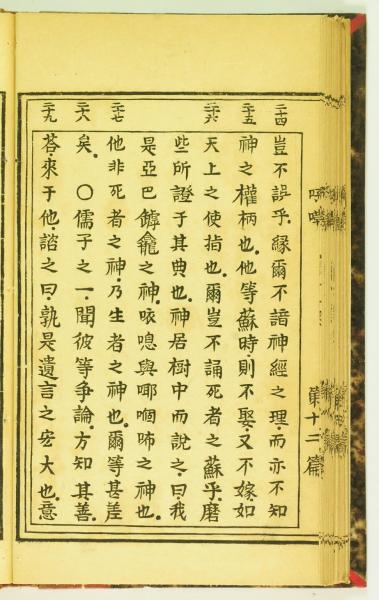 二十四 豈不誤乎緣爾不諳神經之理而亦不知
二十五 神之權柄也他等蘇時則不娶又不嫁如
二十六 天上之使指也爾豈不誦死者之蘇乎磨
些所證于其典也神居樹中而說之曰我
是亞巴𪅂龕之神咳𠺝與㖿嗰㕷之神也
二十七 他非死者之神乃生者之神也爾等甚差
二十八 矣〇儒子之一聞彼等爭論方知其善
二十九 荅來于他諮之曰孰是遺言之宏大也意
第十二篇